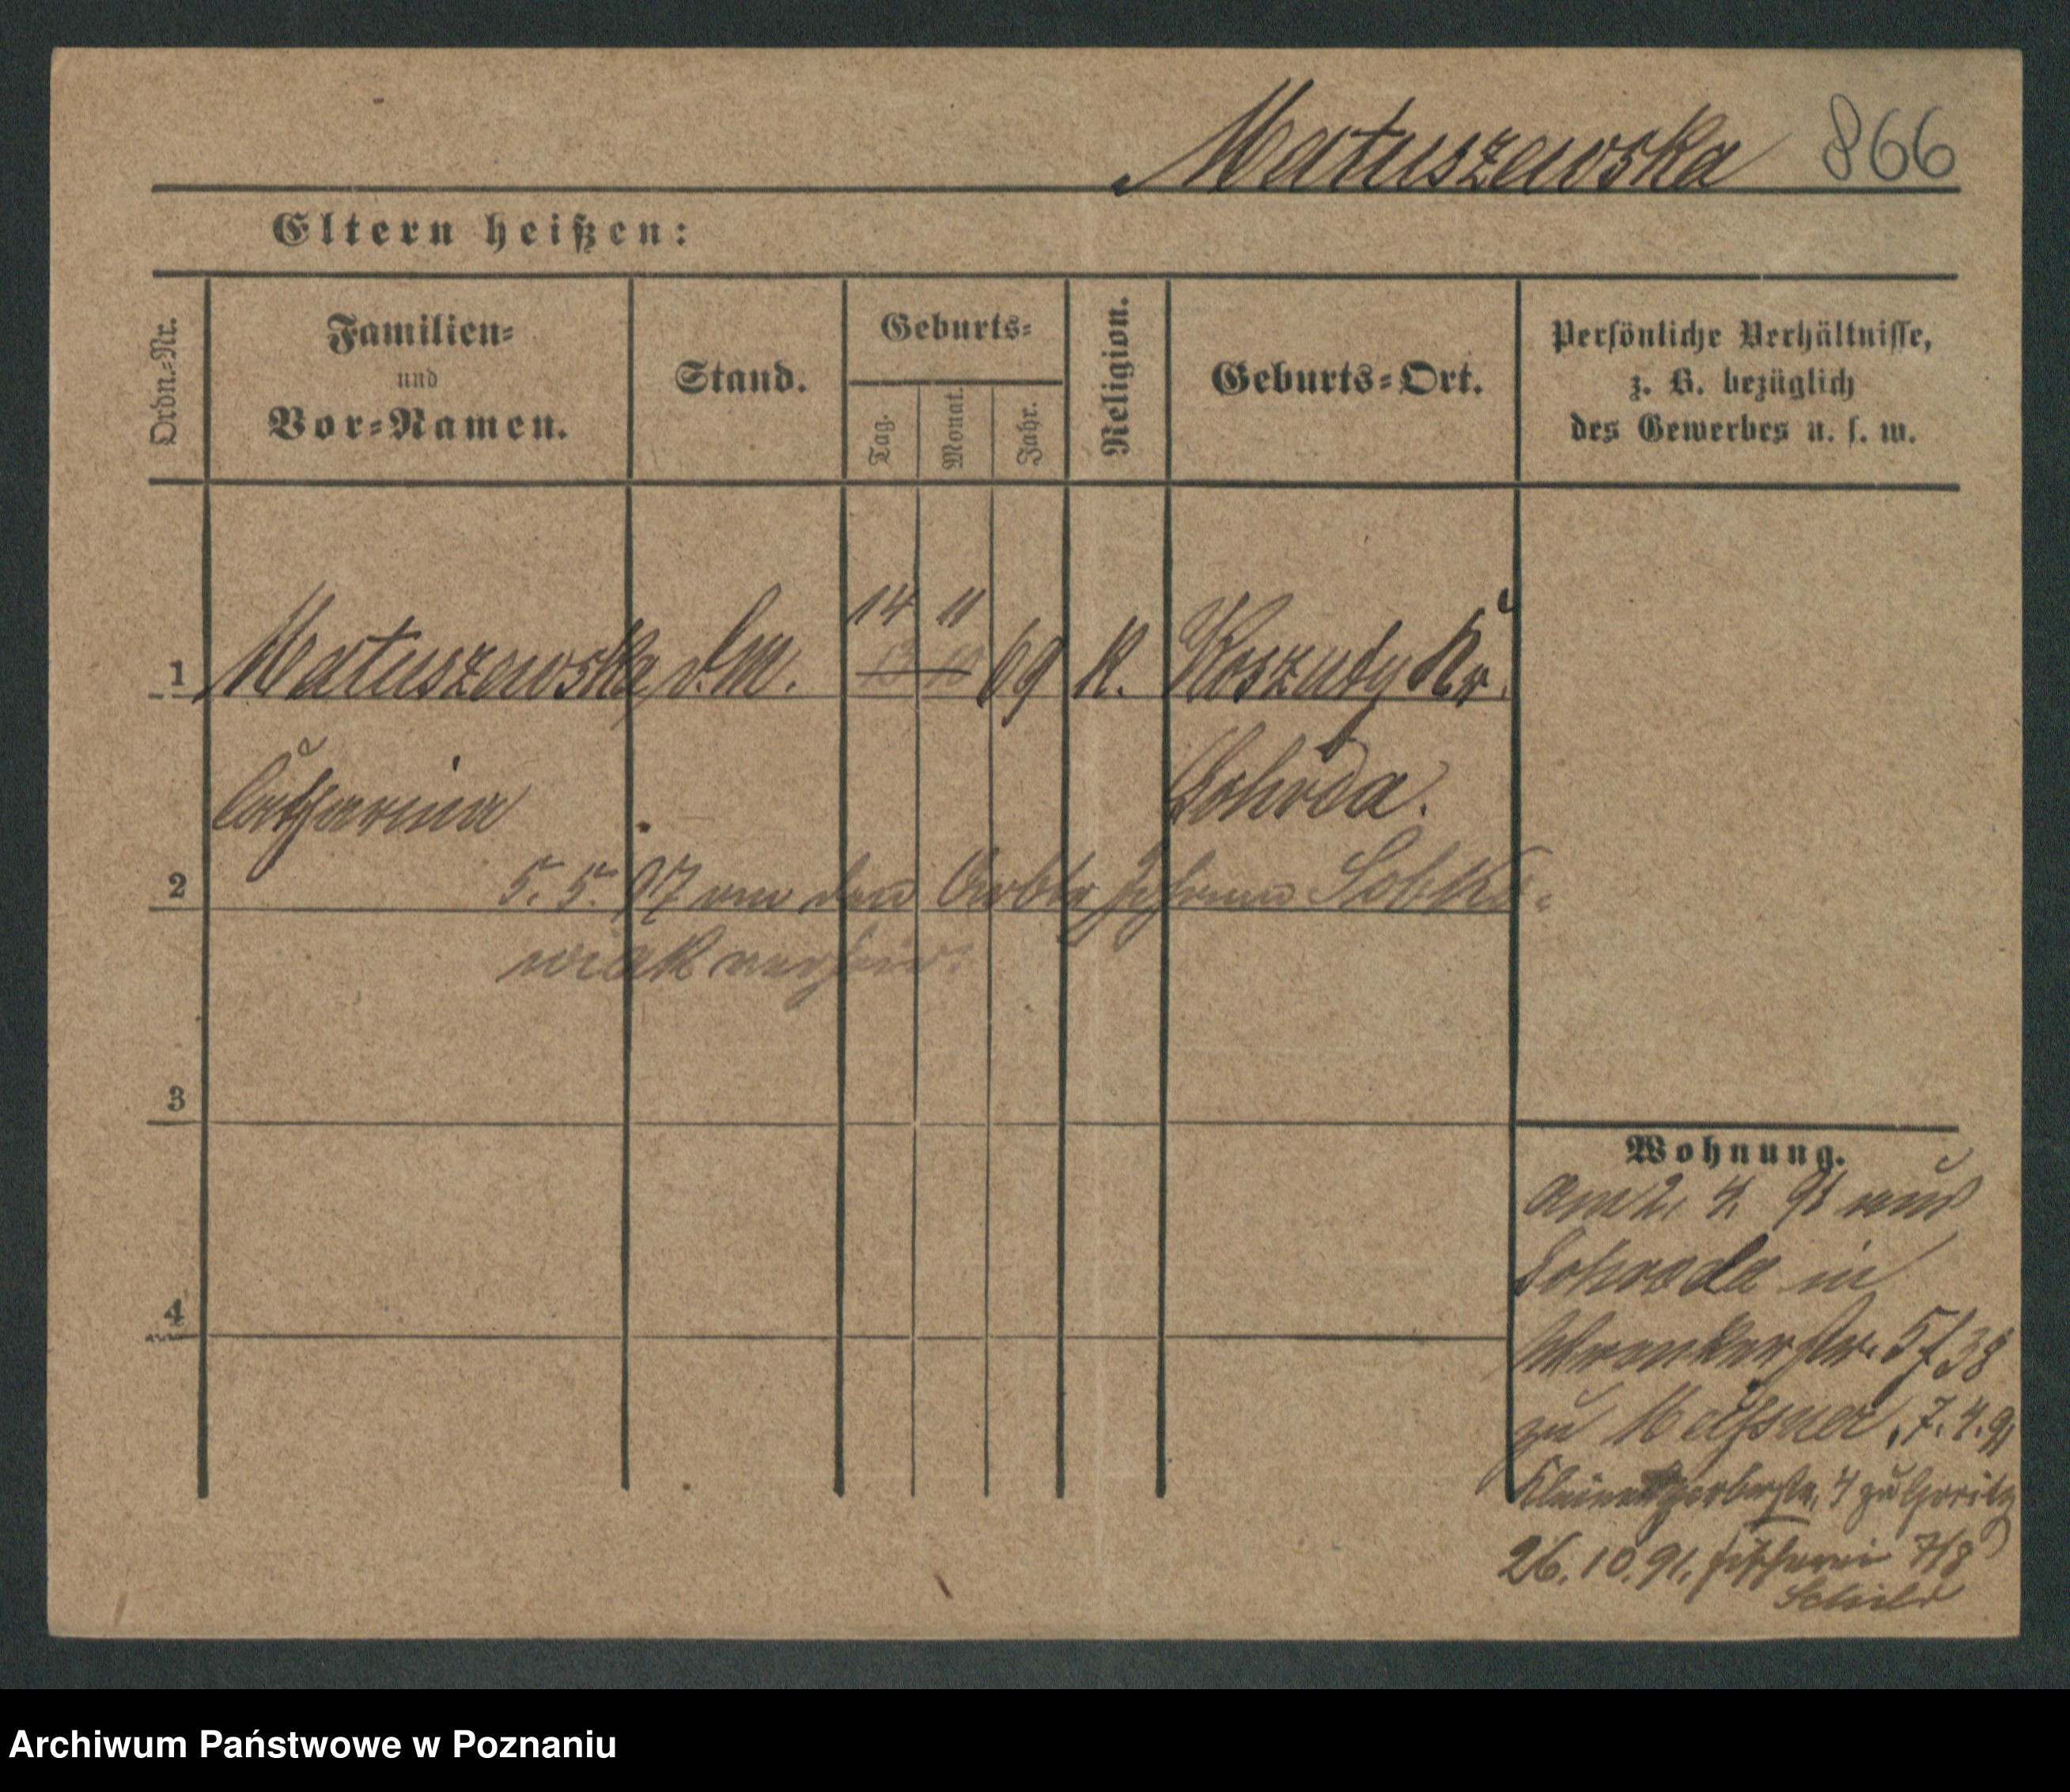 Matuszewska 866
Eltern heißen:
Ordn.-Nr.
Familien-
und
Vor-Namen.
Stand.
Geburts-
Tag.
Monat.
Jahr.
Religion.
Geburts-Ort.
Persönliche Verhältnisse,
z. B. bezüglich
des Gewerbes u. s. w.
14 11
1 Matuszewska, d. M. 69 K. Koszuty Kr.
Catharina Schroda.
2 5. 5. 97 an den Arbtr Johann Sobko-
wiak verheir.
3
4
Wohnung.
am 2. 4. 91 aus
Schroda in
Wronkerstr. 5/38
zu Meissner, 7. 4. 91
Kleine gerberstr. 4 zu
26. 10. 91. Fischerei 7/8
Schild
Archiwum Państwowe w Poznaniu